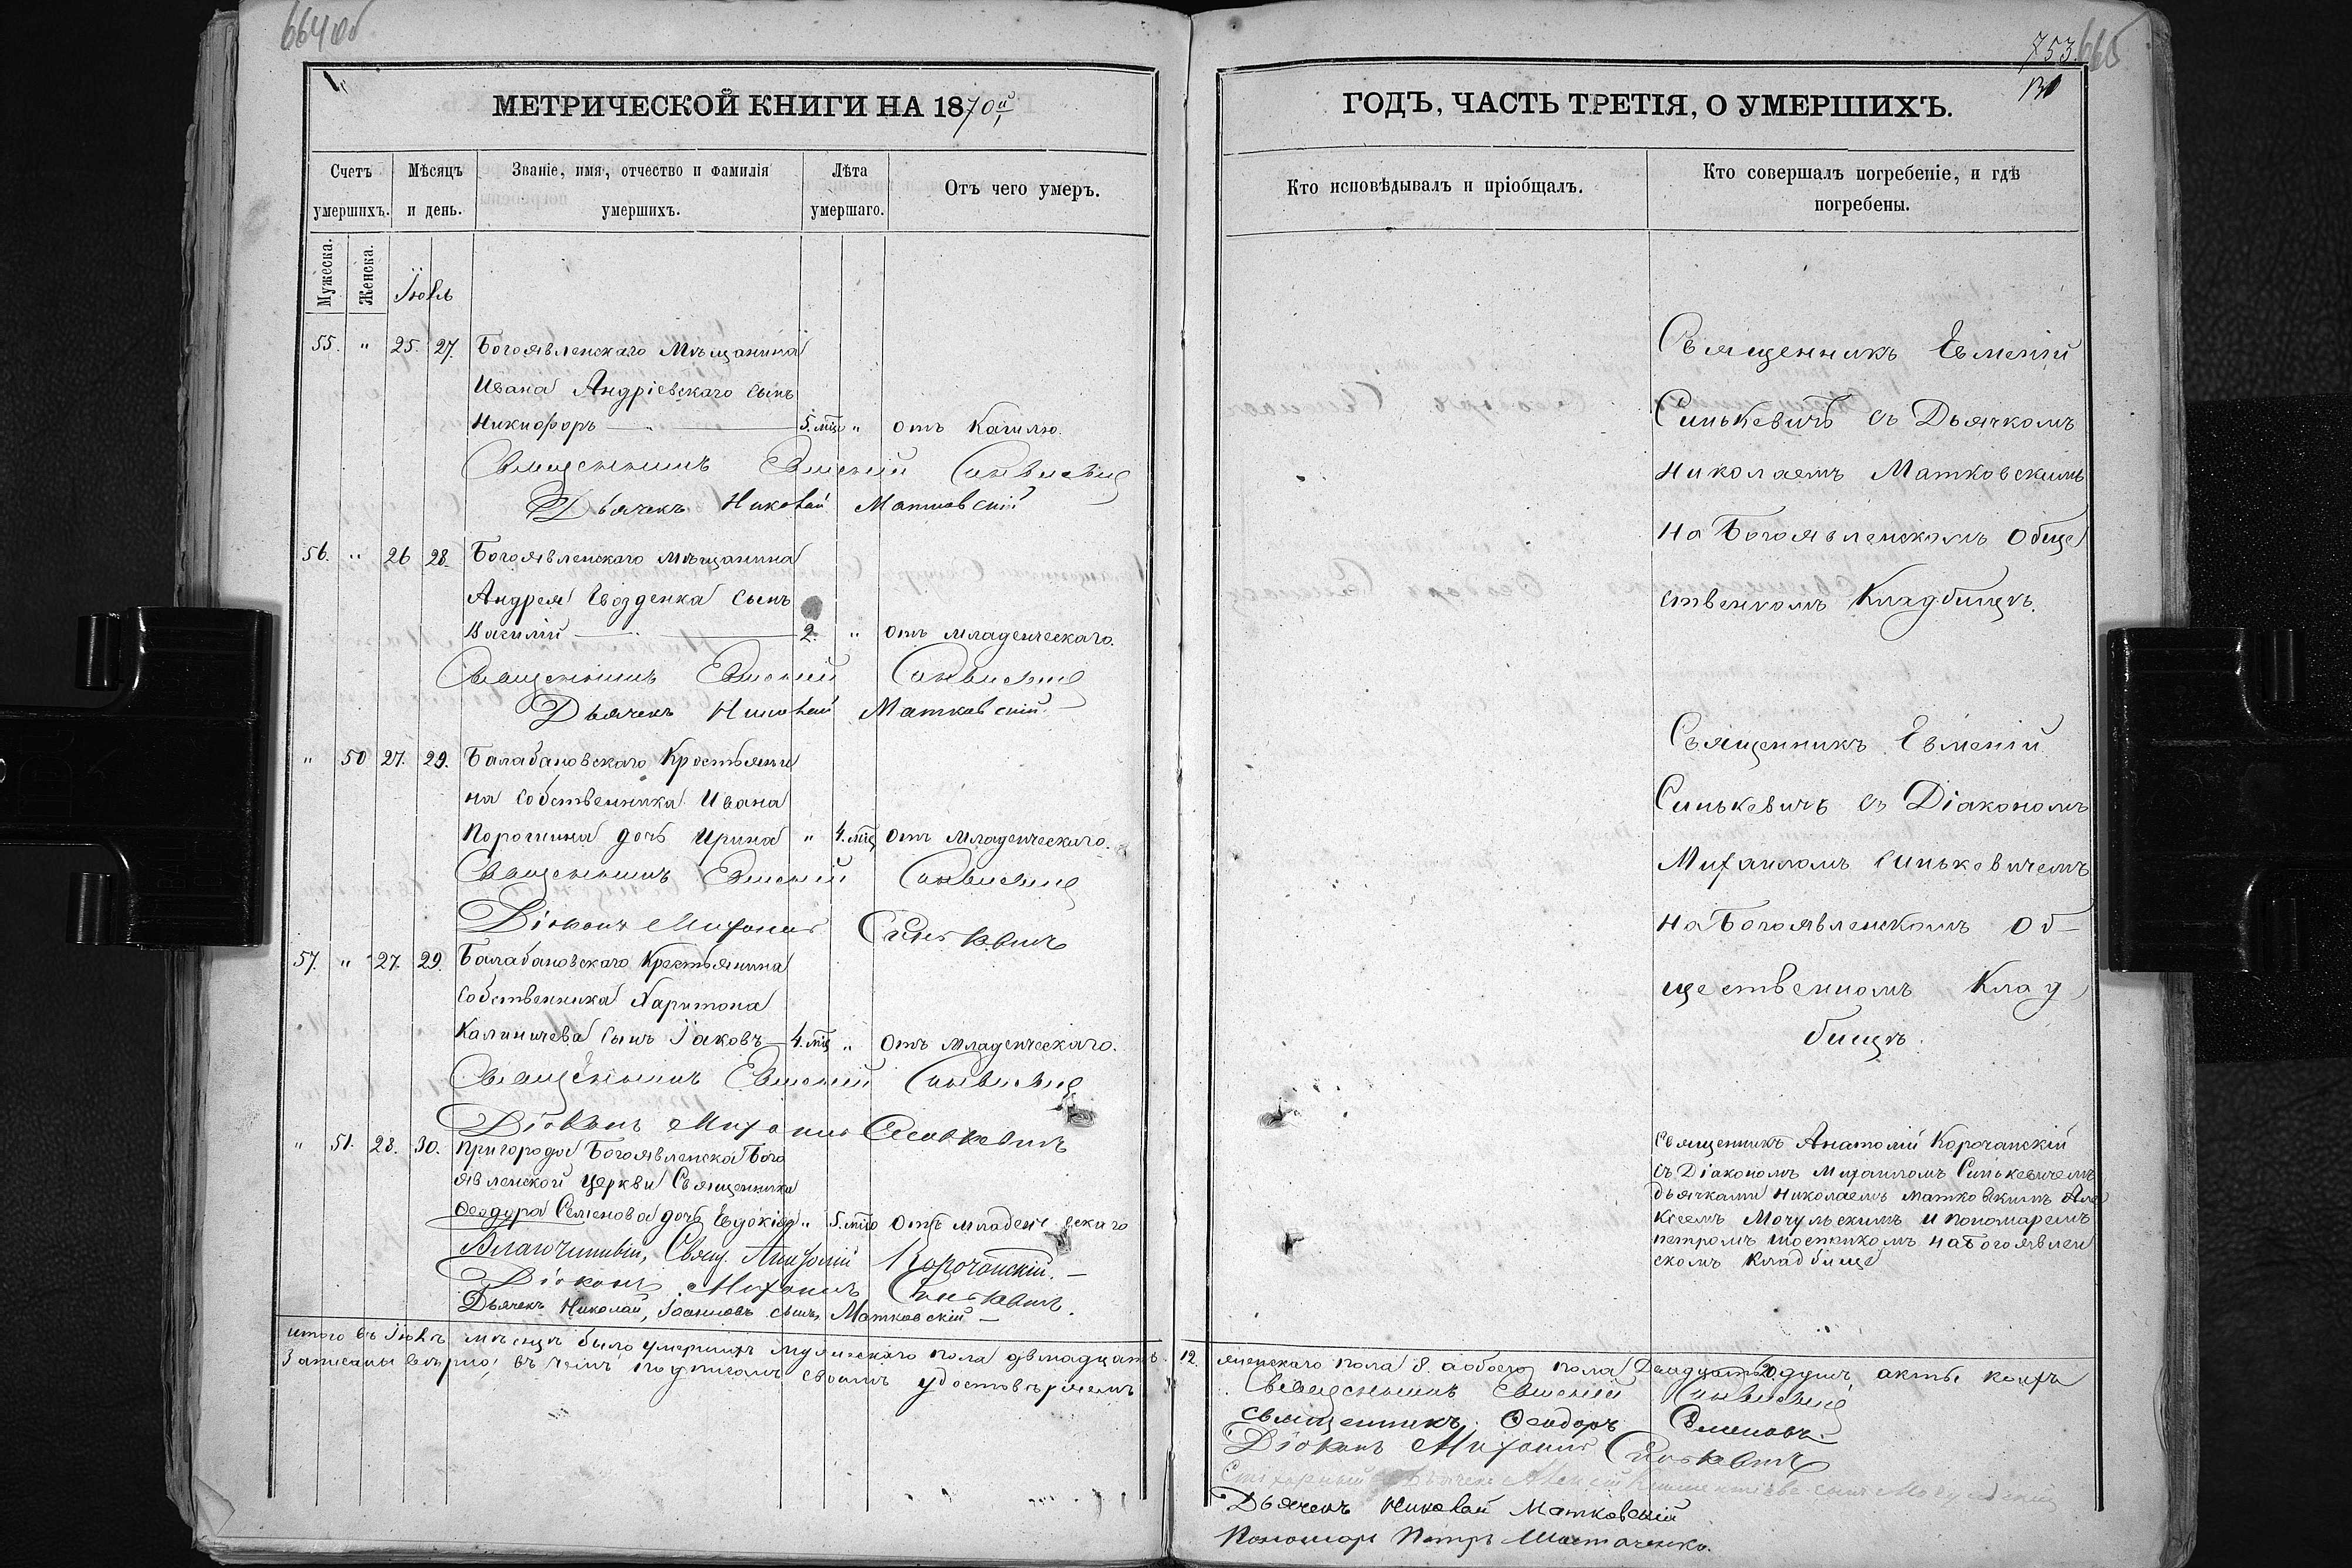 664 об
753. 665
130
МЕТРИЧЕСКОЙ КНИГИ НА 1870й
Счетъ умершихъ.
Мѣсяцъ и день.
Званіе, имя, отчество и фамилія умершихъ.
Лѣта умершаго.
Отъ чего умеръ.
Мужеска.
Женска.
Іюль
55. " 25. 27. Богоявленскаго Мѣщанина
Ивана Андріевскаго сынъ
Никифоръ 5. мц " отъ Кашлю.
Священникъ Евменій Синькевичъ
Дьячекъ Николай Матковскій
56. " 26 28. Богоявленскаго мѣщанина
Андрея Гвозденка сынъ
Василій 2. " отъ младенческаго.
Священникъ Евменій Синькевичъ
Дьячекъ Николай Матковскій.
" 50 27. 29. Балабановскаго Крестьяни
на собственника Ивана
Порошина дочь Ирина " 4. мц отъ младенческаго.
Священникъ Евменій Синькевичъ
Діаконъ Михаилъ Синькевичъ
57. " 27. 29. Балабановскаго Крестьянина
собственника Харитона
Калиничева сынъ Іаковъ 4. мц " отъ младенческаго.
Священникъ Евменій Синькевичъ
Діаконъ Михаилъ Синькевичъ
" 51. 28. 30. пригорода Богоявленска Бого
явленской церкви Священника
Феодора Семенова дочь Евдокія " 5. отъ младенческаго
Благочинный, Свящ. Анатолій Корочанскій.
Діаконъ Михаилъ Синькевичъ.
Дьячекъ Николай, Іоанновъ сынъ, Матковскій
итого въ Іюлѣ мѣсяцѣ было умершихъ мужескаго пола двѣнадцать
Записаны вѣрно, въ чемъ подписомъ своимъ удостовѣряемъ
ГОДЪ, ЧАСТЬ ТРЕТІЯ, О УМЕРШИХЪ.
Кто исповѣдывалъ и пріобщалъ.
Кто совершалъ погребеніе, и гдѣ погребены.
Священникъ Евменій
Синькевичъ съ Дьячкомъ
Николаемъ Матковскимъ
на Богоявленскомъ обще
ственномъ Кладбищѣ.
Священникъ Евменій
Синькевичъ съ Діакономъ
Михаиломъ Синькевичемъ
на Богоявленскомъ Об-
щественномъ Клад
бищѣ.
Священникъ Анатолій Корочанскій
съ Діакономъ Михаиломъ Синькевичемъ
дьячками Николаемъ Матковскимъ Але
ксеемъ Мочульскимъ и пономаремъ
петромъ на Богоявлен
скомъ кладбище
12. женскаго пола 8. а обоего пола Двадцать 20 душъ, акты коихъ
Священникъ Евменій Синькевичъ
священникъ Феодоръ Семеновъ.
Діаконъ Михаилъ Синькевичъ
Дьячекъ Николай Матковскій
Пономарь Петръ